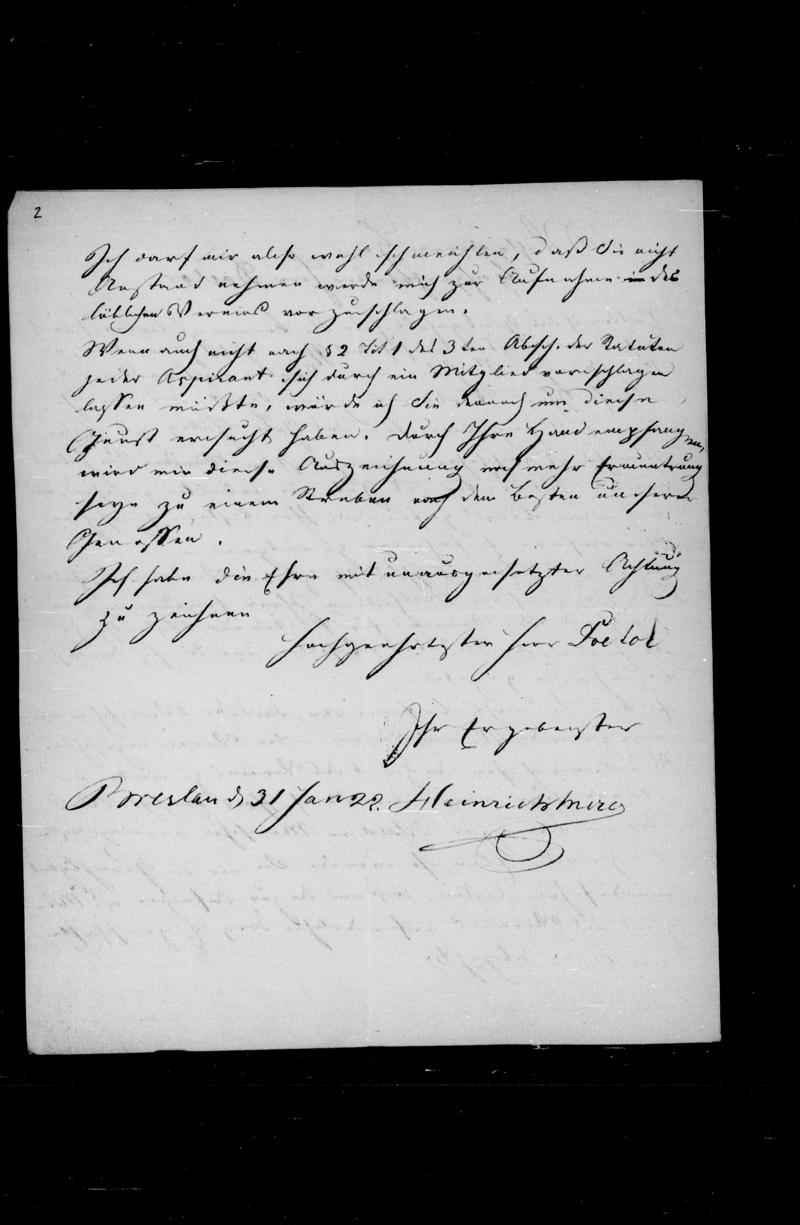 2
Ich darf mir also wohl schmeichlen, daß Sie nicht
Anstand nehmen werde mich zur Aufnahme in des
löblichen Vereins vorzuschlagen.
Wenn auch nicht nach §2 Tit 1 des 3ten Absch. der Statuten
jeder Aspirant sich durch ein Mitglied vorschlagen
lassen müßte, würde ich Sie dennoch um diese
Gunst ersucht haben. Durch Ihre Hand empfangen,
wird mir diese Auszeichnung noch mehr Ermunterung
seyn zu einem Streben nach dem Besten unserer
Genossen.
Ich habe die Ehre mit unausgesetzter Achtung
zu zeichnen
Hochgeehrtester Herr Doctor
Ihr Ergebenster
Breslau d 31 Jan 22.